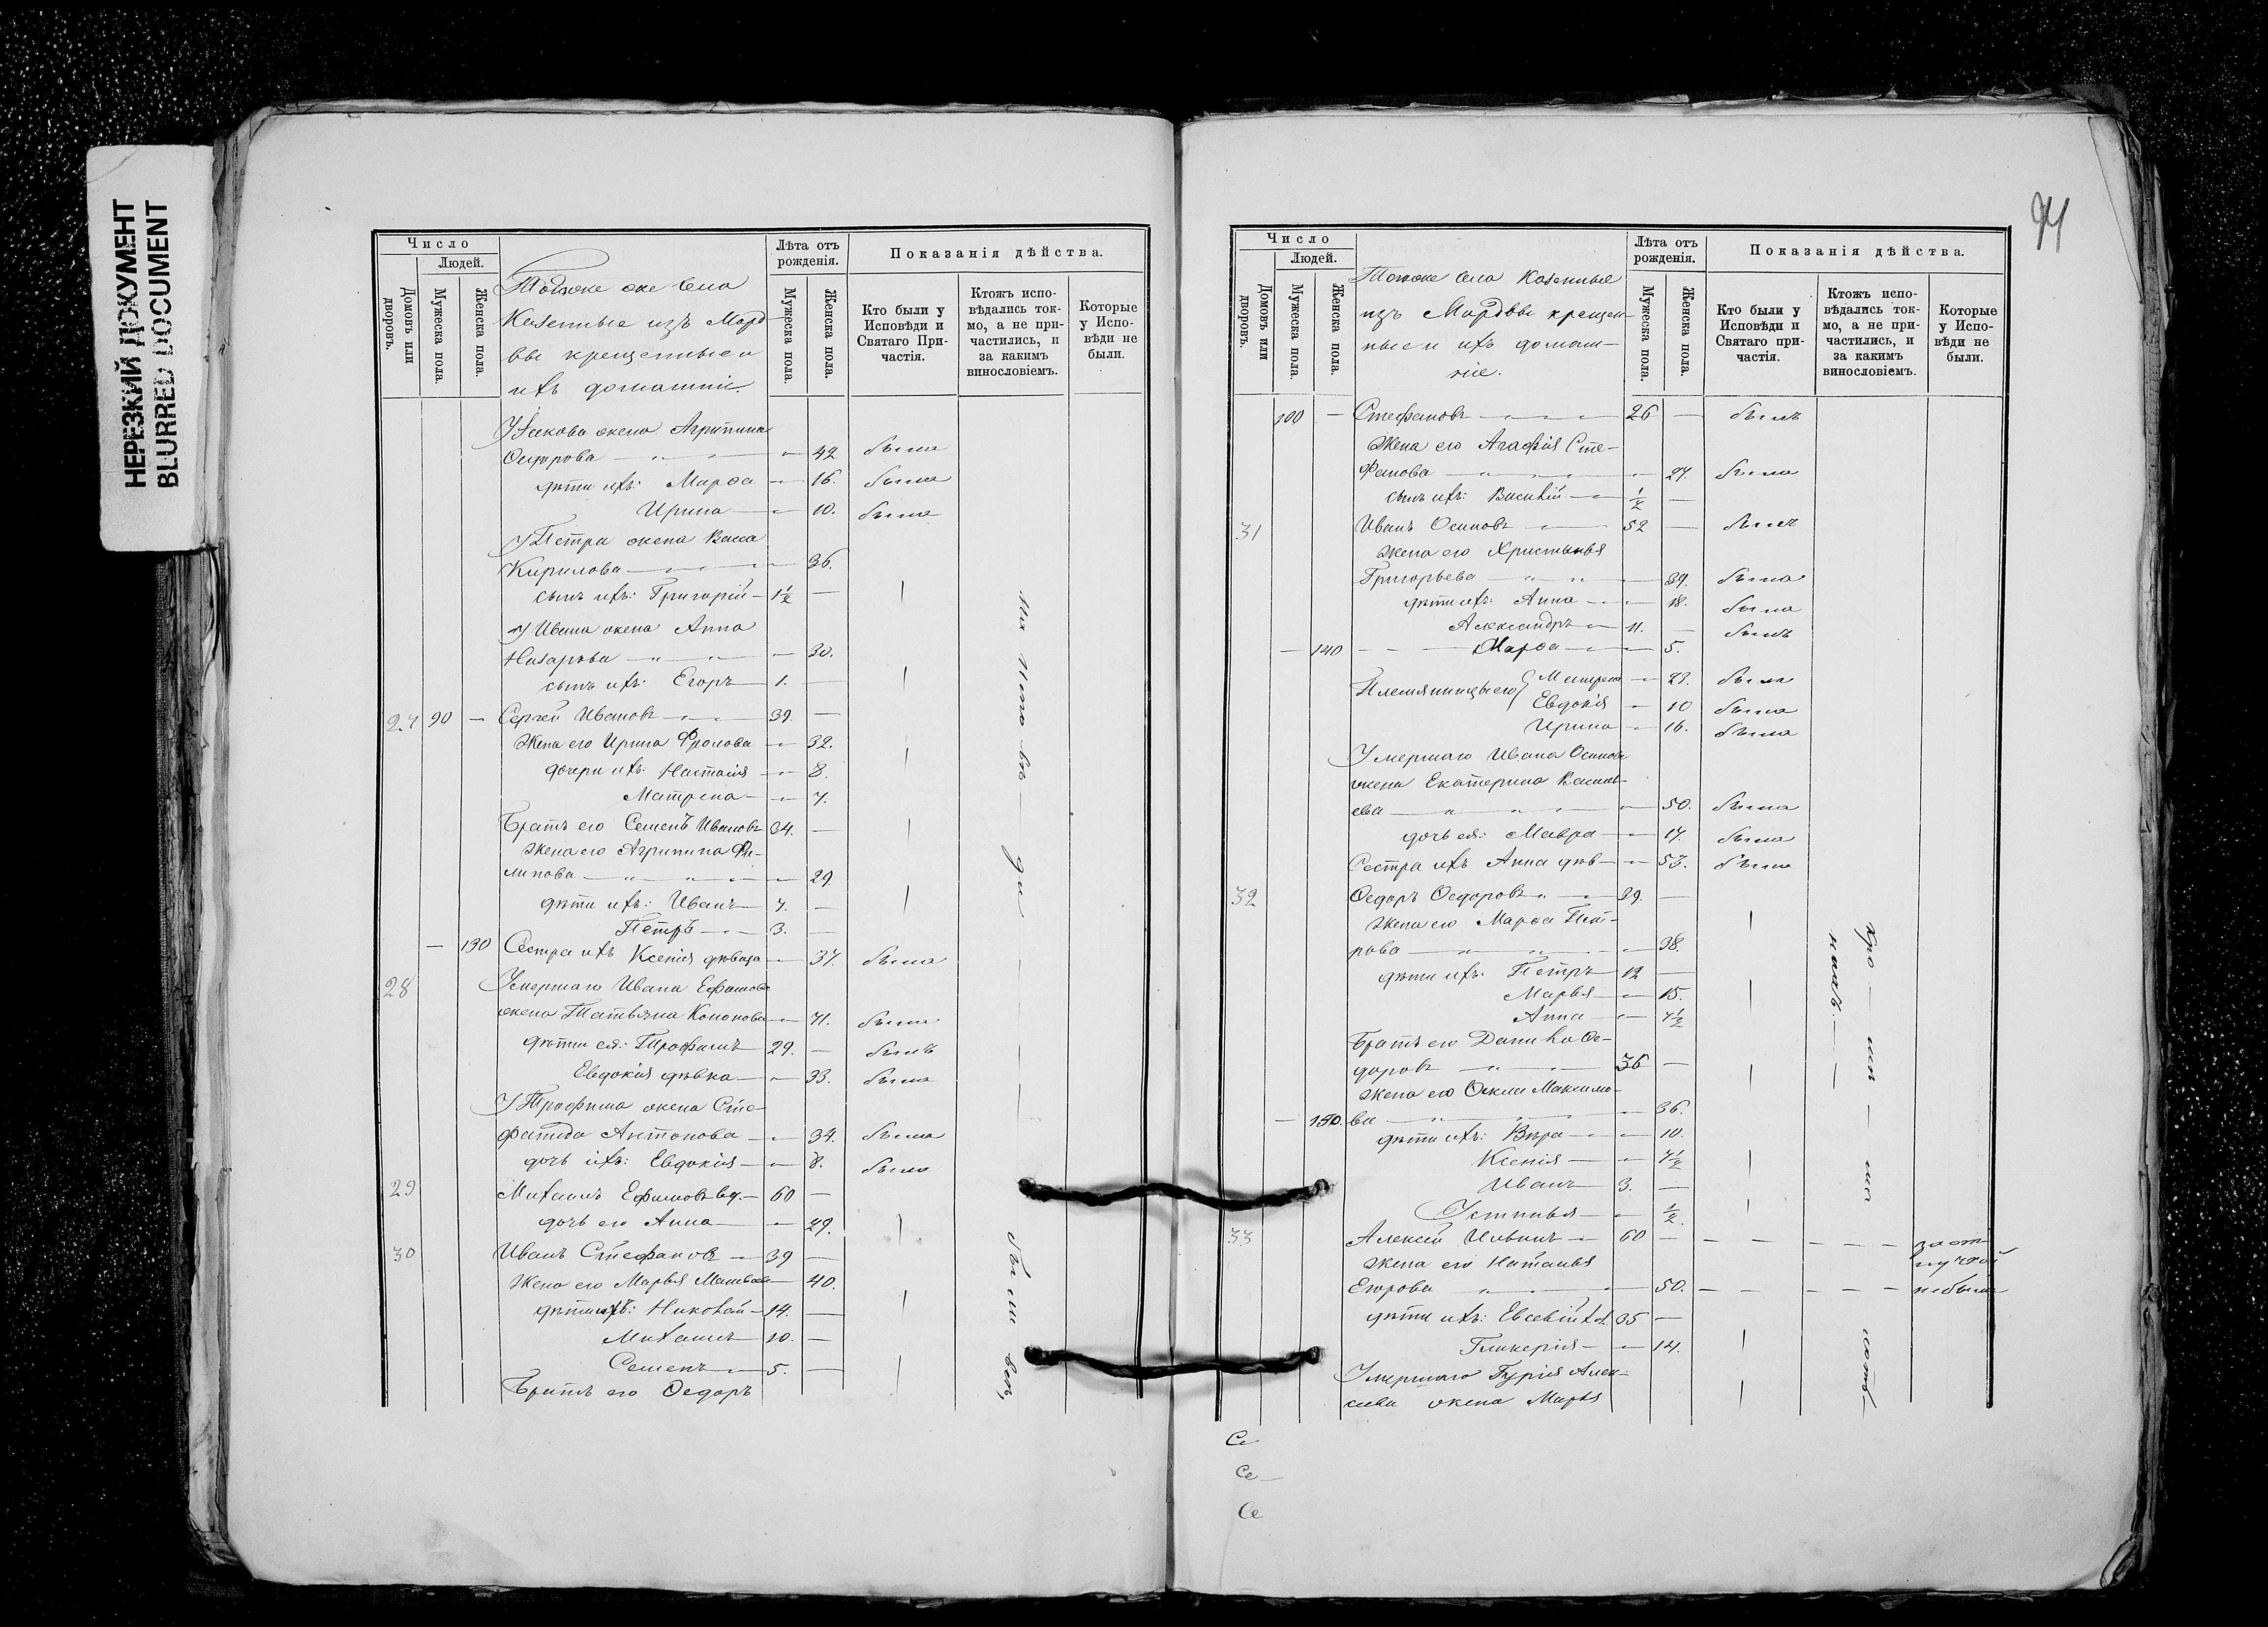 НЕРЕЗКИЙ ДОКУМЕНТ
BLURRED DOCUMENT
Число
Людей.
Домовъ или дворовъ.
Мужеска пола.
Женска пола.
Тогоже же Села
Казенные изъ Морд
вы крещенные и
ихъ домашніе
Лѣта отъ рожденія.
Мужеска пола.
Женска пола.
Показанія дѣйства.
Кто были у Исповѣди и Святаго Причастія.
Ктожъ исповѣдались токмо, а не причастились, и за какимъ винословіемъ.
Которые у Исповѣди не были.
У Якова жена Агрипина
Ѳедорова 42 была
дѣти ихъ: Марѳа 16. была
Ирина 10. была
У Петра жена Васса
Кирилова 36.
сынъ ихъ: Григорій 1½
У Ивана жена Анна
Назарова 30.
сынъ ихъ: Егоръ 1.
27 90 Сергей Ивановъ 39.
Жена его Ирина Фролова 32.
дочери ихъ: Настасія 8.
Матрена 7.
Братъ его Семенъ Ивановъ 34.
Жена его Агрипина Фи-
липова 29.
дѣти ихъ: Иванъ 7.
Петръ 3.
130 Сестра ихъ Ксенія дѣвица 37. была
28 Умершаго Ивана Ефимова
жена Татьяна Кононова 71. была
дѣти ея: Трофимъ 29. былъ
Евдокія дѣвка 33. была
У Трофима жена Сте-
фанида Антонова 34. была
дочь ихъ: Евдокія 8. была
29 Михаилъ Ефимовъ вд. 60
дочь его Анна 29.
30 Иванъ Стефановъ 39
Жена его Марья Матвѣева 40.
дѣти ихъ: Николай 14.
Михаилъ 10.
Семенъ 5.
Братъ его Ѳедоръ
были
94
Число
Людей.
Домовъ или дворовъ.
Мужеска пола.
Женска пола.
Тогоже Села Казенные
изъ Мордвы крещен-
ные и ихъ домаш-
ніе.
Лѣта отъ рожденія.
Мужеска пола.
Женска пола.
Показанія дѣйства.
Кто были у Исповѣди и Святаго причастія.
Ктожъ исповѣдались токмо, а не причастились, и за какимъ винословіемъ.
Которые у Исповѣди не были.
100 Стефановъ 26 былъ
Жена его Агафія Сте-
фанова 27. была
сынъ ихъ: Василій ½
31 Иванъ Осиповъ 52 былъ
Жена его Христинья
Григорьева 39. была
дѣти ихъ: Анна 18. была
Александръ 11. былъ
140 Марѳа 5.
Племянницы его Матрена 23. была
Евдокія 10 была
Ирина 16. была
Умершаго Ивана Осипова
жена Екатерина Василь-
ева 50. была
дочь ея: Мавра 17. была
Сестра ихъ Анна дѣв 53. была
32 Ѳедоръ Ѳедоровъ 39.
Жена его Марѳа Пет-
рова 38.
дѣти ихъ: Петръ 12
Марья 15.
Анна 7½
Братъ его Данило Ѳе-
доровъ 36
Жена его Ѳекла Максимо-
150. ва 36.
дѣти ихъ: Вѣра 10.
Ксенія 7½
Иванъ 3.
Устинья ½
33 Алексѣй 60 за от
Жена его Наталья лучкой
Егорова 50. небыли
дѣти ихъ: Евсевій 35
Гликерія 14.
Умершаго Гурія Алек-
сѣева жена Марья
Се
Се
Се